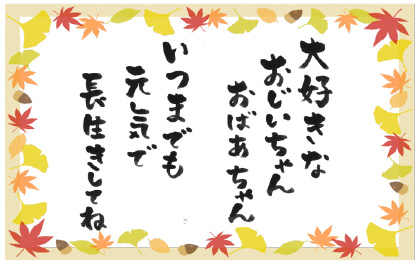 大好きな
おじいちゃん
おばあちゃん
いつまでも
元気で
長生きしてね